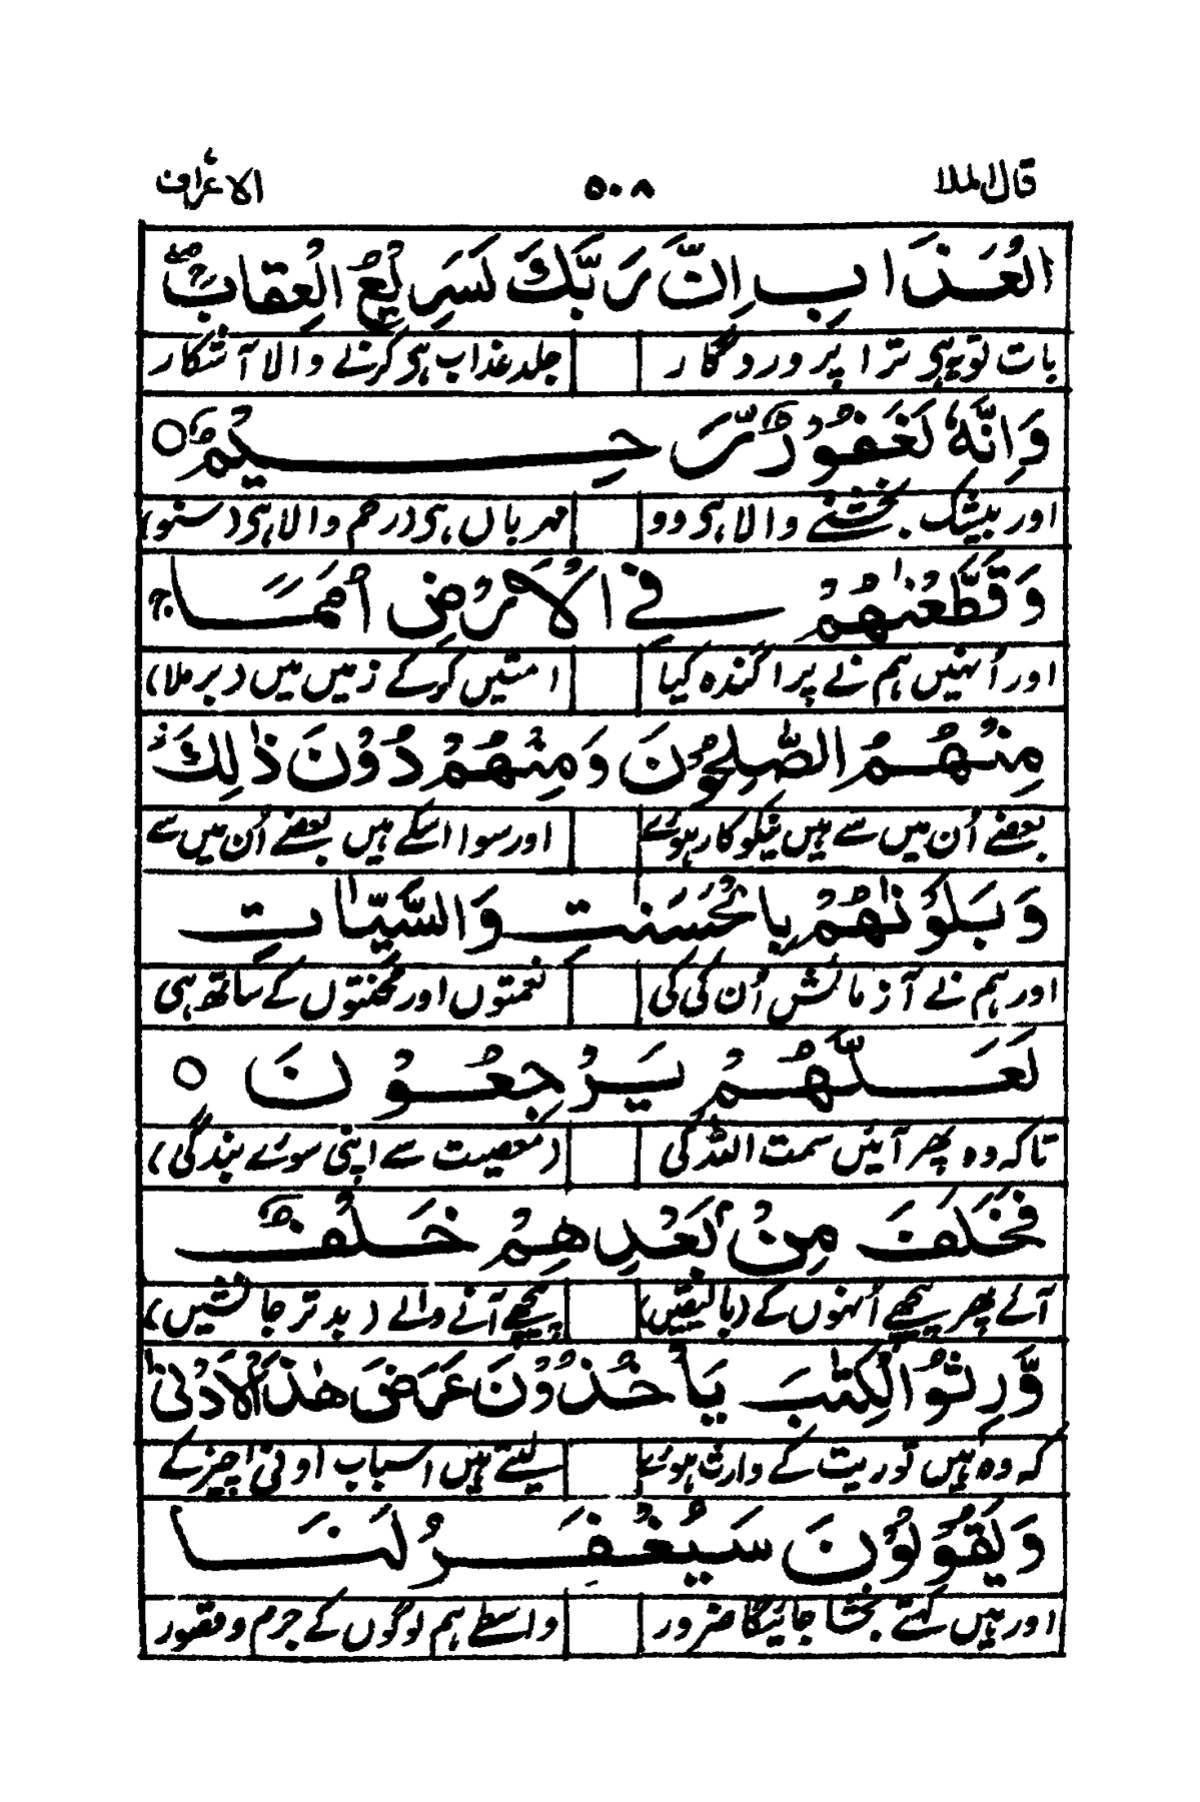 قال الملا ۵۰۸ الاعراف
الْعَذَابِ اِنَّ رَبَّكَ لَسَرِيْعُ الْعِقَابِ ۚۖ
بات تو یہ ہی ترا پروردگار جلد عذاب ہی کرنے والا آشکار
وَاِنَّهٗ لَغَفُوْرٌ رَّحِيْمٌ ○
اور بیشک بخشنے والا ہی وو مہرباں ہی (رحم والا ہی (سنو)
وَقَطَّعْنٰهُمْ فِي الْاَرْضِ اُمَمًا ۚ
اور اُنہیں ہم نے پراگندہ کیا امتیں کرکے زمیں میں (برملا)
مِنْهُمُ الصّٰلِحُوْنَ وَمِنْهُمْ دُوْنَ ذٰلِكَ ۡ
بعضے اُن میں سے ہیں نیکوکار ہوئے اور سوا اسکے ہیں بعضے اُن میں سے
وَبَلَوْنٰهُمْ بِالْحَسَنٰتِ وَالسَّيِّاٰتِ
اور ہم نے آزمائش اُن کی کی نعمتوں اور محنتوں کے ساتھ ہی
لَعَلَّهُمْ يَرْجِعُوْنَ ○
تاکہ وہ پھر آئیں سمت اللہ کی (معصیت سے اپنی سوئے بندگی)
فَخَلَفَ مِنْۢ بَعْدِهِمْ خَلْفٌ
آئے پھر پیچھے اُنہوں کے (بالیقیں) پیچھے آنے والے (بدتر جانشیں)
وَّرِثُوا الْكِتٰبَ يَاْخُذُوْنَ عَرَضَ هٰذَا الْاَدْنٰى
کہ وہ ہیں توریت کے وارث ہوئے لیتے ہیں اسباب ادنیٰ چیز کے
وَيَقُوْلُوْنَ سَيُغْفَرُ لَنَا
اور ہیں کہتے بخشا جائیگا ضرور واسطے ہم لوگوں کے جرم و قصور